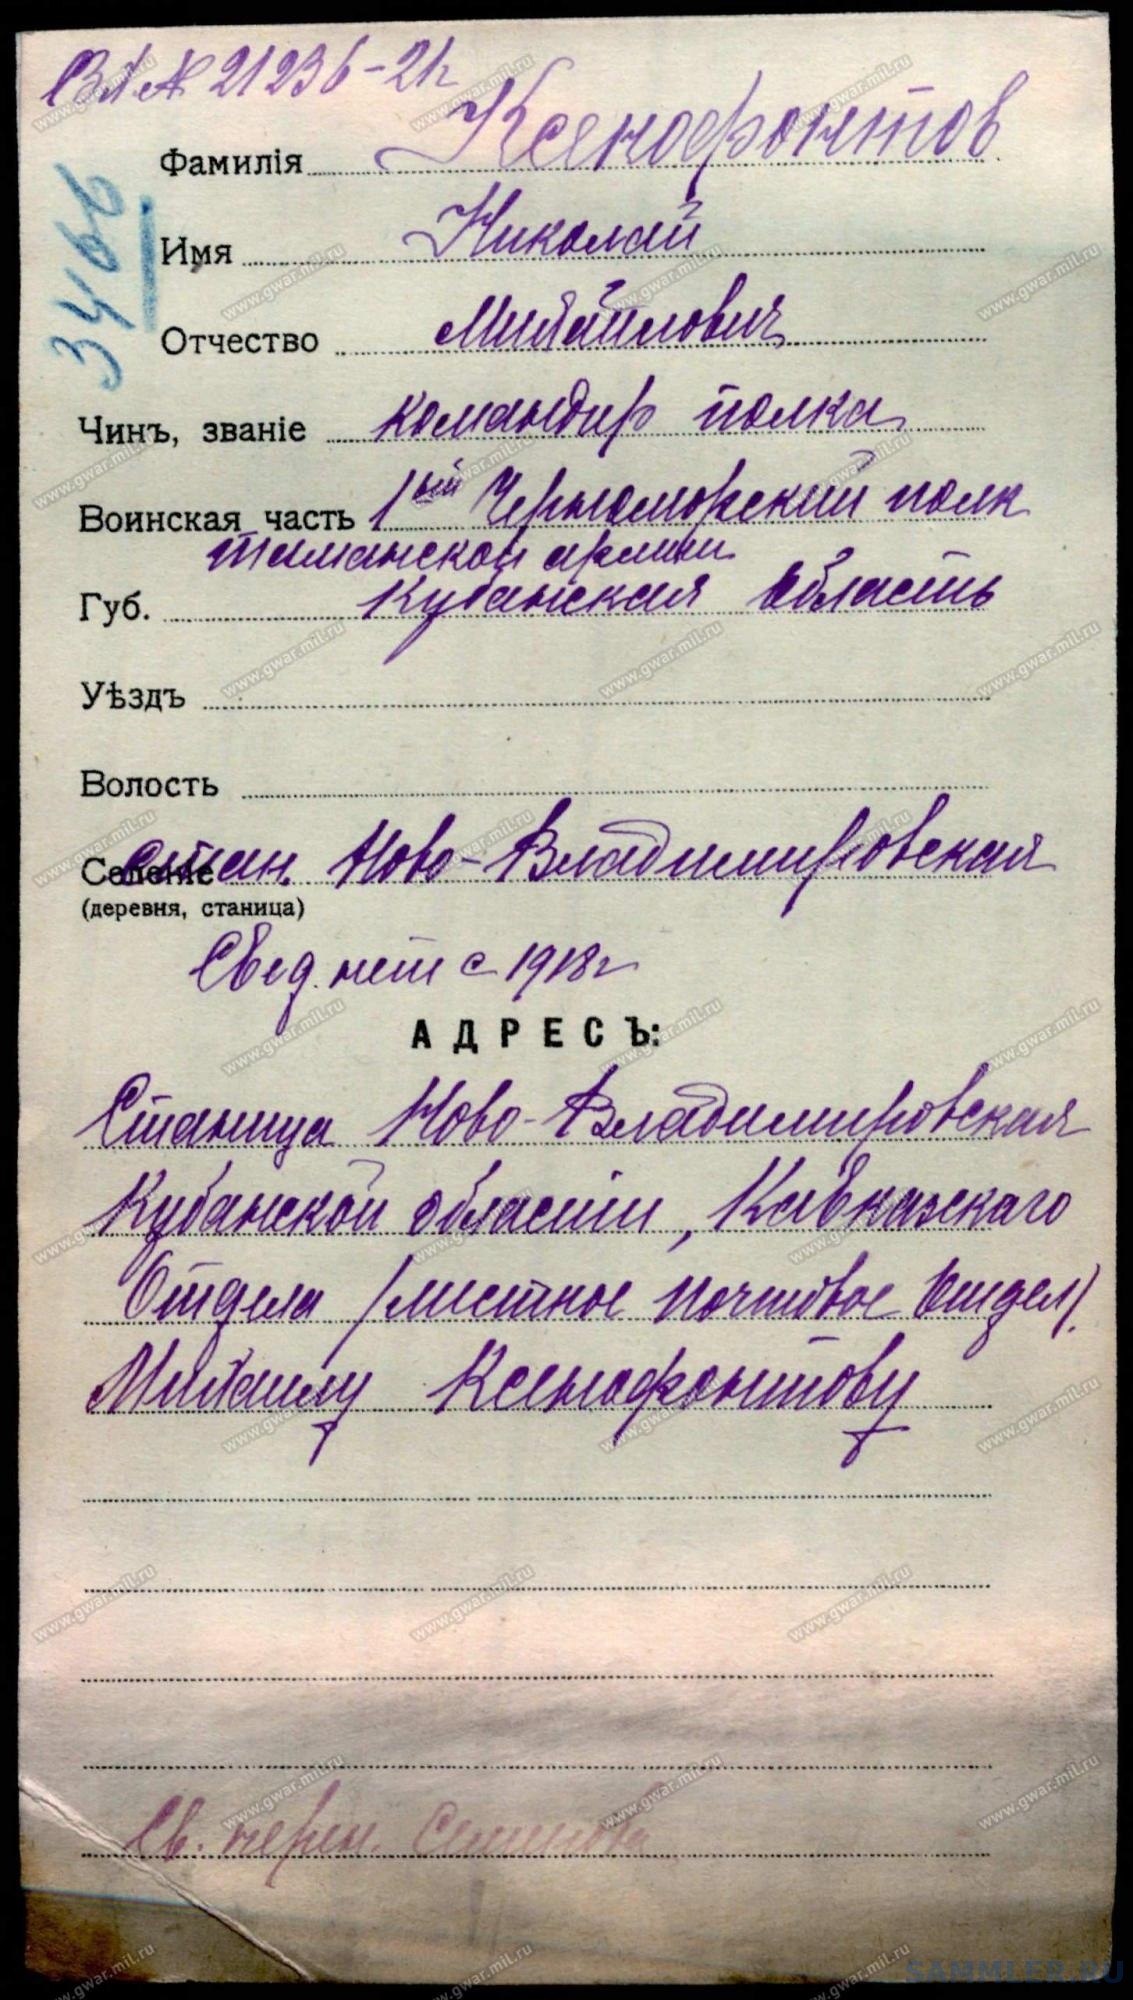 № 21236-21г
3466
Фамилія Ксенофонтов
Имя Николай
Отчество Михайлович
Чинъ, званіе командир полка
Воинская часть 1ый Черноморский полк
таманской армии
Губ. Кубанская область
Уѣздъ
Волость
Селеніе стан. Ново-Владимировская
(деревня, станица)
Свед. нет с 1918г
АДРЕСЪ:
Станица Ново-Владимировская
Кубанской области, Кавказскаго
Отдела (местное почтовое отдел).
Михаилу Ксенофонтову
Св. перен. Семенова
www.gwar.mil.ru
SAMMLER.RU